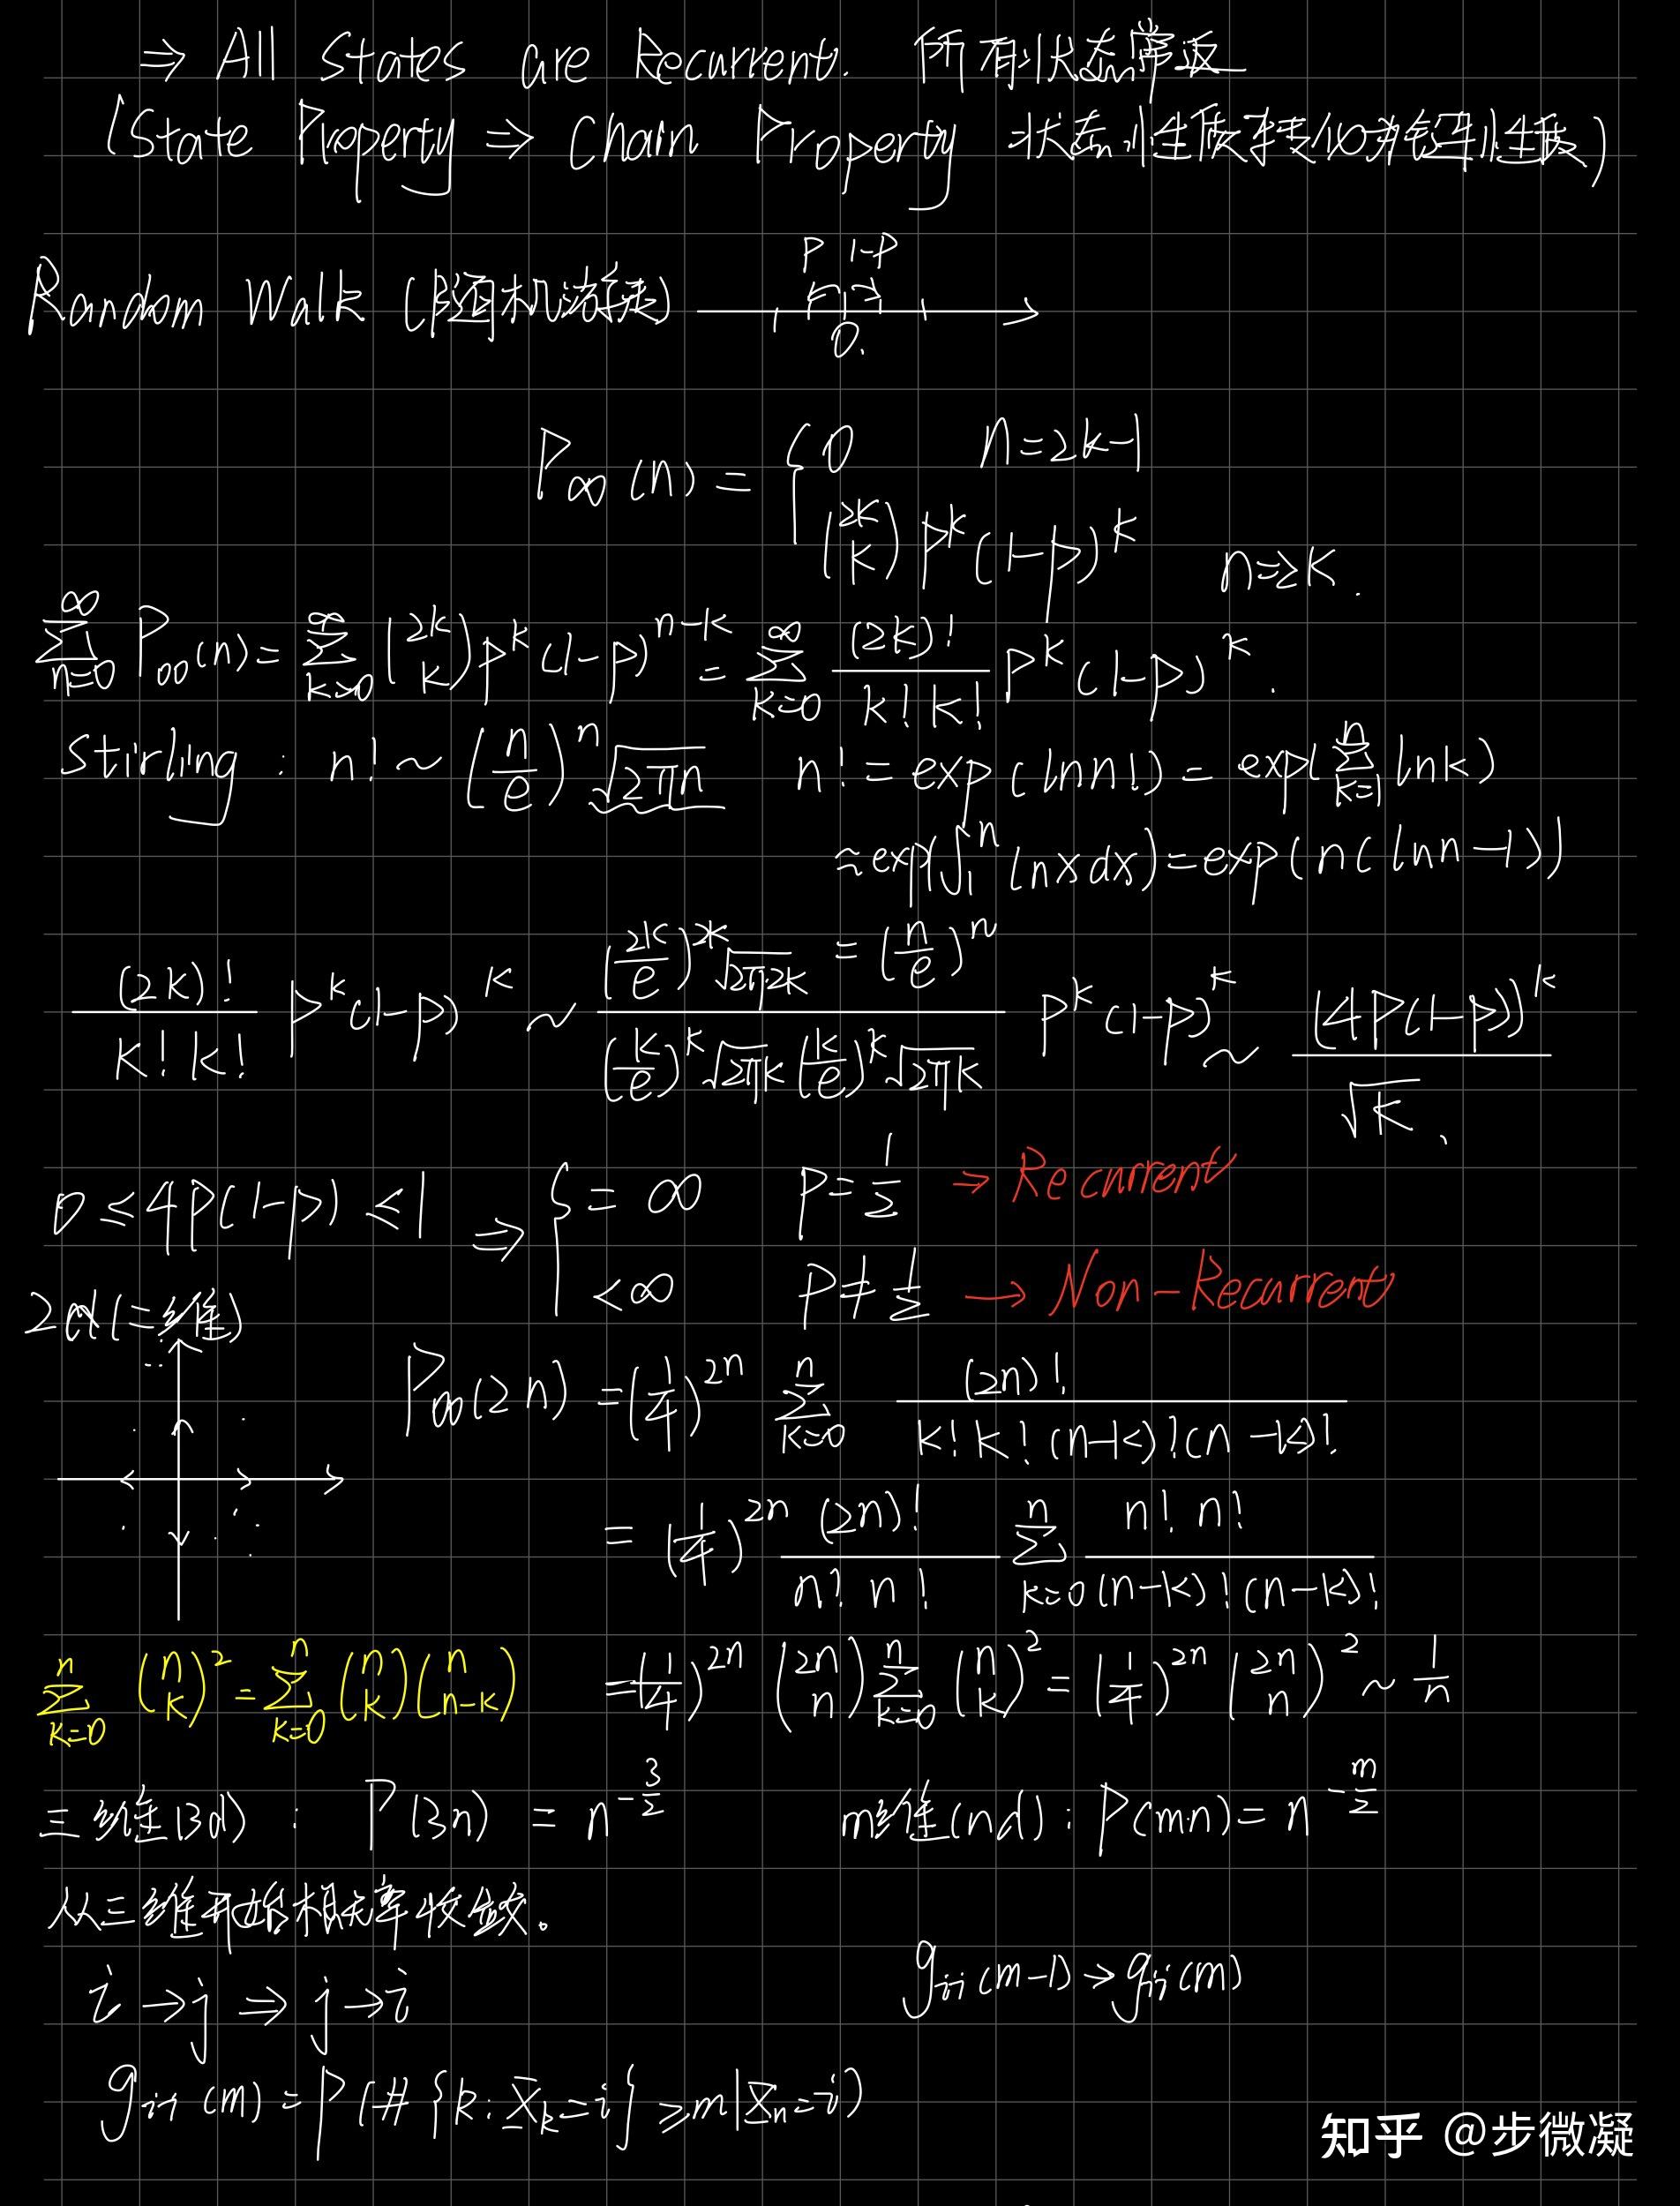 ⇒ All States are Recurrent. 所有状态常返
(State Property ⇒ Chain Property 状态性质转化为链性质)
P 1-P
Random Walk (随机游走) 0.
P₀₀(n) = { 0 n=2k-1
(2k k) p^k (1-p)^k n=2k.
∑_{n=0}^{∞} P₀₀(n) = ∑_{k=0}^{∞} (2k k) p^k (1-p)^{n-k} = ∑_{k=0}^{∞} (2k)!/(k!k!) p^k (1-p)^k.
Stirling: n! ~ (n/e)^n √(2πn) n! = exp(ln n!) = exp(∑_{k=1}^{n} ln k)
≈ exp(∫_1^n ln x dx) = exp(n(ln n -1))
= (n/e)^n
(2k)!/(k!k!) p^k (1-p)^k ~ (2k/e)^{2k} √(2π·2k) / ((k/e)^k √(2πk) (k/e)^k √(2πk)) p^k (1-p)^k ~ (4p(1-p))^k / √k.
0 ≤ 4p(1-p) ≤ 1 ⇒ { = ∞ p = 1/2 → Recurrent
< ∞ p ≠ 1/2 → Non-Recurrent
2d(二维)
P₀₀(2n) = (1/4)^{2n} ∑_{k=0}^{n} (2n)!/(k!k!(n-k)!(n-k)!)
= (1/4)^{2n} (2n)!/(n!n!) ∑_{k=0}^{n} n!n!/((n-k)!(n-k)!)
∑_{k=0}^{n} (n k)² = ∑_{k=0}^{n} (n k)(n n-k) = (1/4)^{2n} (2n n) ∑_{k=0}^{n} (n k)² = (1/4)^{2n} (2n n)² ~ 1/n
三维(3d): P(3n) = n^{-3/2} m维(nd): P(m·n) = n^{-m/2}
从三维开始概率收敛。
i → j ⇒ j → i g_{ii}(m-1) → g_{ii}(m)
g_{ii}(m) = P(#{k: X_k = i} ≥ m | X_n = i)
知乎 @步微凝